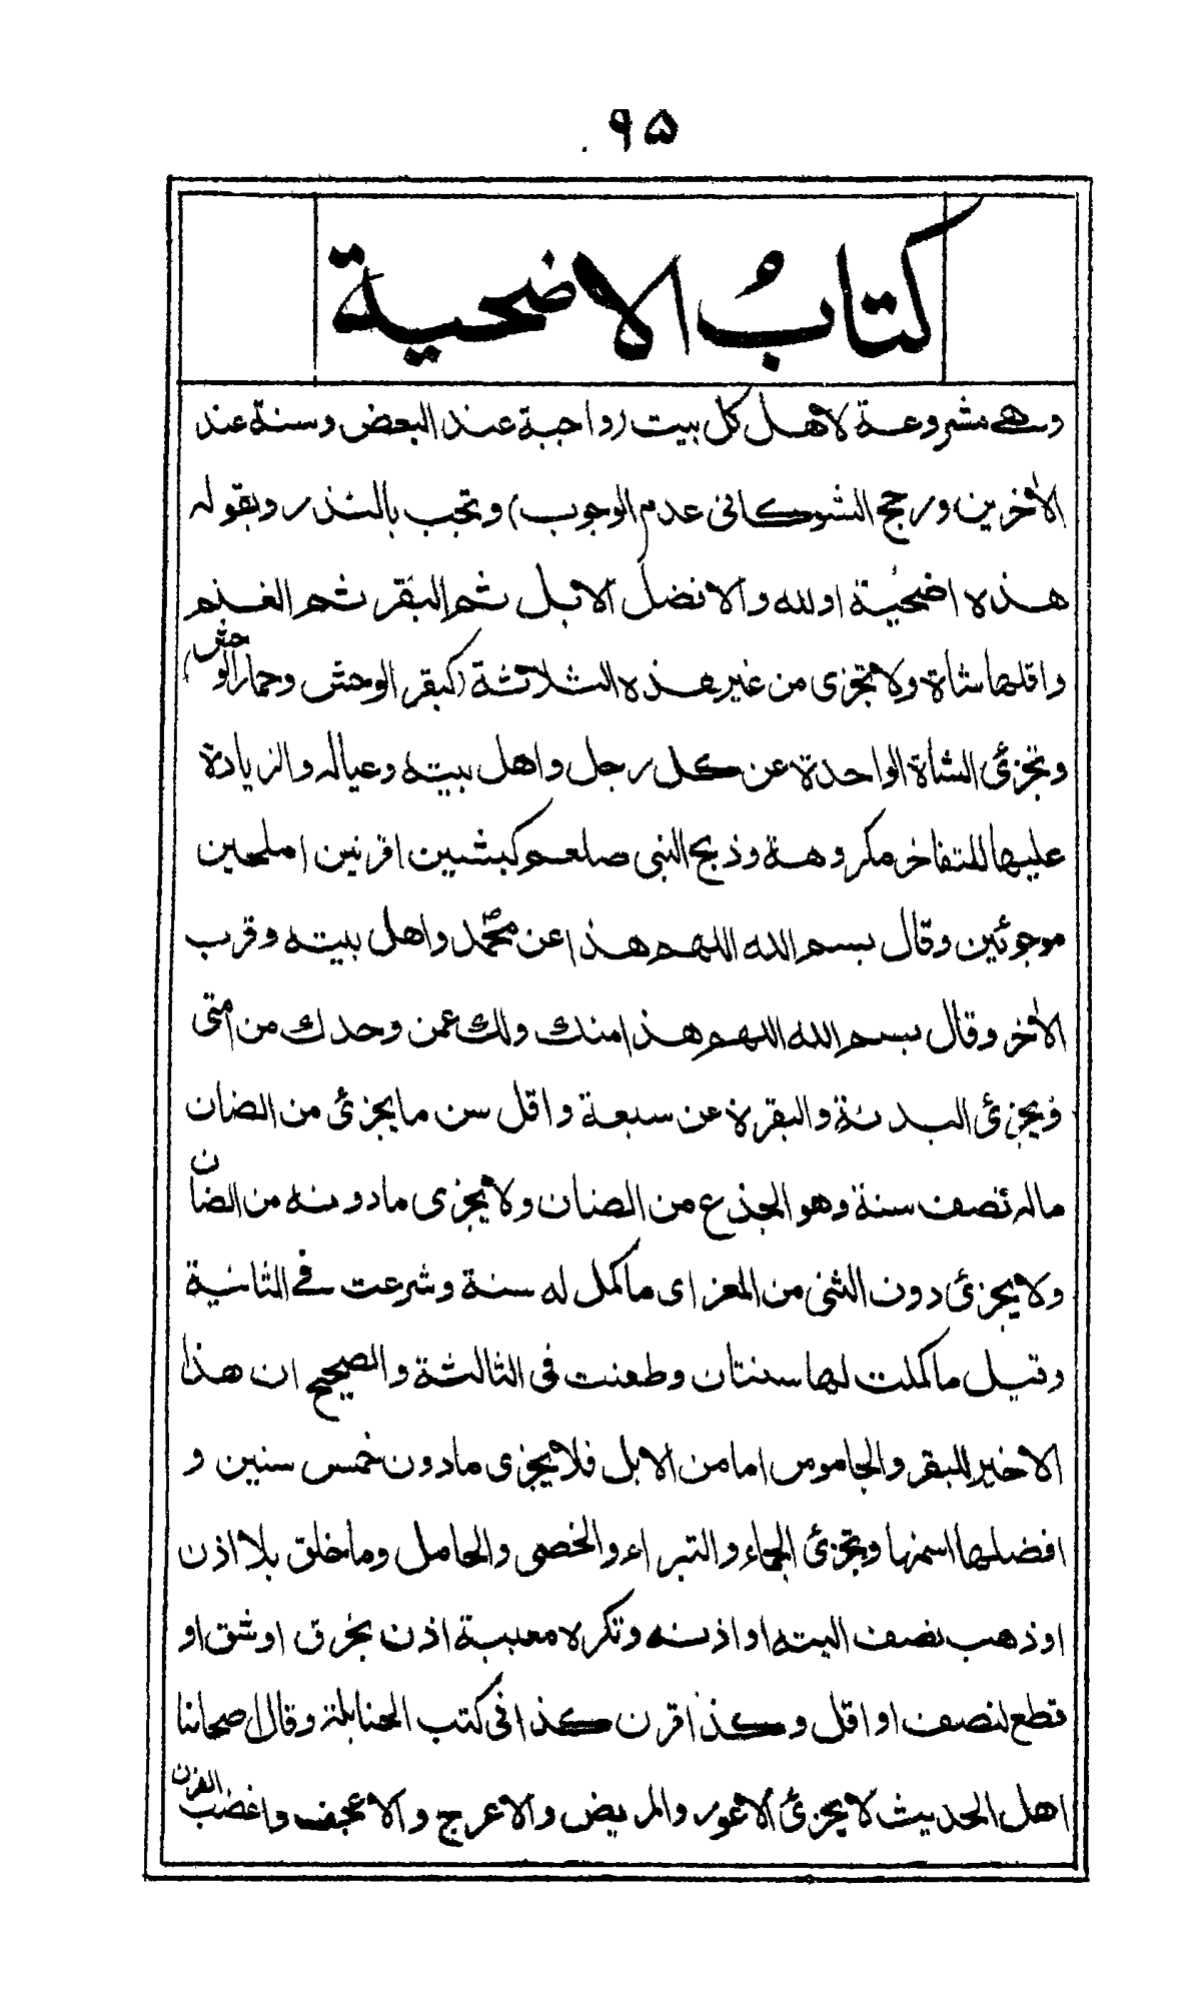 ۹۵
كتابُ الاضحية
وهي مشروعة لاهل كل بيت (واجبة عند البعض وسنة عند
الأخرين ورجح الشوكانى عدم الوجوب) وتجب بالنذر وبقوله
هذه اضحية اولله والافضل الابل ثم البقر ثم الغنم
واقلها شاة ولا تجزى من غير هذه الثلاثة (كبقر الوحش وحمار الوحش)
وتجزئ الشاة الواحدة عن كل رجل واهل بيته وعياله والزيادة
عليها للتفاخر مكروهة وذبح النبى صلعم كبشين اقرنين املحين
موجوئين وقال بسم الله اللهم هذا عن محمد واهل بيته وقرب
الأخر وقال بسم الله اللهم هذا منك ولك عمن وحدك من امتى
ويجزئ البدنة والبقرة عن سبعة واقل سن ما يجزئ من الضان
ماله نصف سنة وهو الجذع من الضان ولا يجزى ما دونه من الضان
ولا يجزئ دون الثنى من المعز اى ما كمل له سنة وشرعت في الثانية
وقيل ما كملت لها سنتان وطعنت فى الثالثة والصحيح ان هذا
الاخير للبقر والجاموس اما من الابل فلا يجزى ما دون خمس سنين و
افضلها اسمنها وتجزئ الجماء والتبراء والخصى والحامل وما خلق بلا اذن
اوذهب نصف اليته او اذنه وتكره معيبة اذن بخرق او شق او
قطع لنصف او اقل وكذا قرن كذا فى كتب الحنابلة وقال اصحابنا
اهل الحديث لا يجزئ الاعور والمريض والاعرج والاعجف واغضب القرن